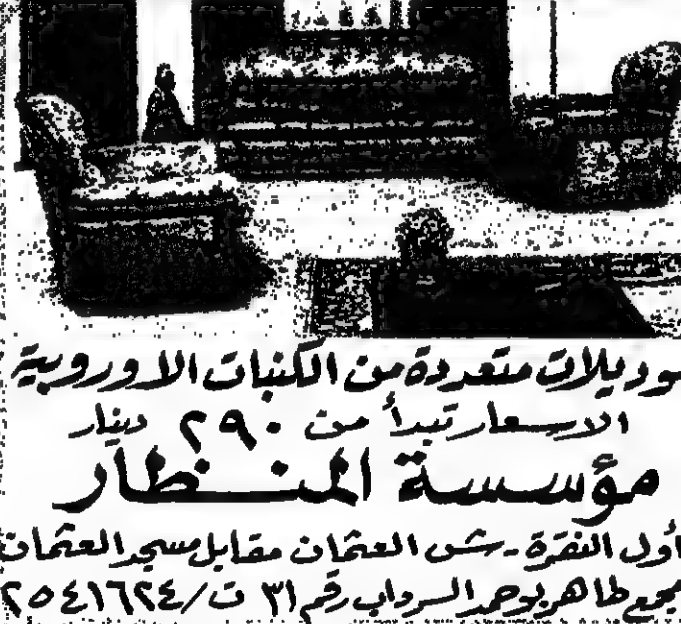 موديلات متعددة من الكنبات الاوروبية
الاسعار تبدأ من ٢٩٠ دينار
مؤسسة المنظار
أول النقرة - ش العثمان مقابل مسجد العثمان
مجمع طاهر بوحمد السرداب رقم ٣١ ت/٢٥٤١٦٢٤